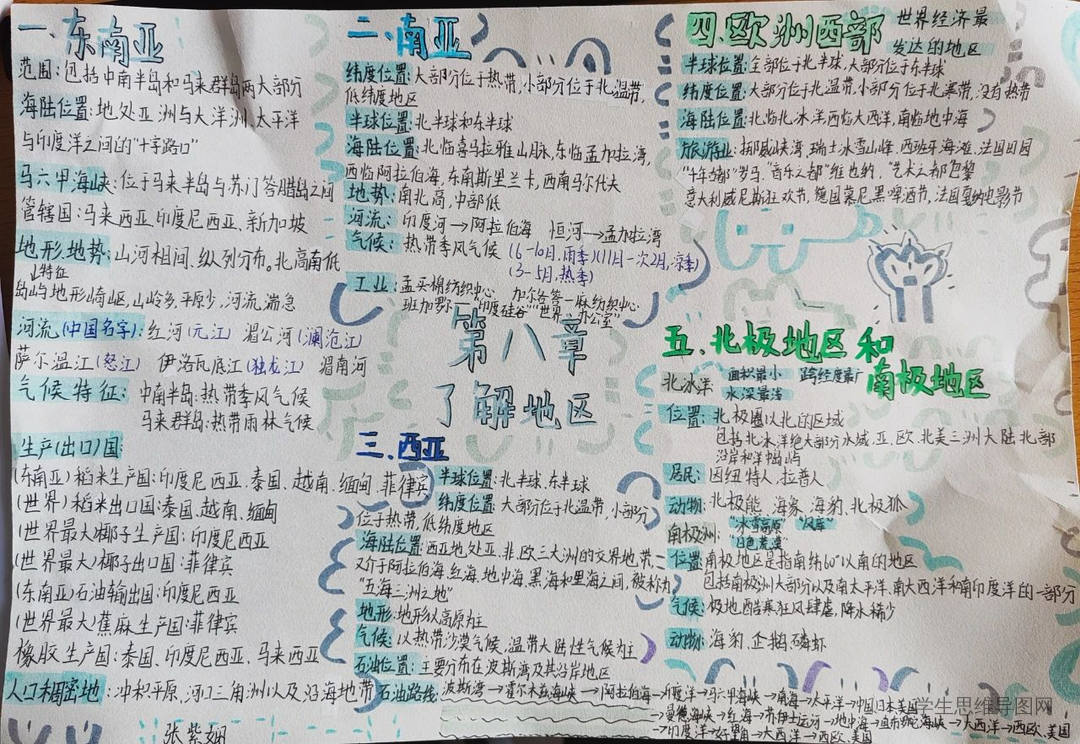 一、东南亚
范围：包括中南半岛和马来群岛两大部分
海陆位置：地处亚洲与大洋洲、太平洋
与印度洋之间的"十字路口"
马六甲海峡：位于马来半岛与苏门答腊岛之间
管辖国：马来西亚、印度尼西亚、新加坡
地形地势：山河相间、纵列分布。北高南低
特征
地形崎岖，山岭多，平原少，河流湍急
河流(中国名字)：红河(元江) 湄公河(澜沧江)
萨尔温江(怒江) 伊洛瓦底江(独龙江) 湄南河
气候特征：中南半岛：热带季风气候
马来群岛：热带雨林气候
生产(出口)国：
(东南亚)稻米生产国：印度尼西亚、泰国、越南、缅甸、菲律宾
(世界)稻米出口国：泰国、越南、缅甸
(世界最大)椰子生产国：印度尼西亚
(世界最大)椰子出口国：菲律宾
(东南亚)石油输出国：印度尼西亚
(世界最大)蕉麻生产国：菲律宾
橡胶生产国：泰国、印度尼西亚、马来西亚
人口稠密地：冲积平原、河口三角洲以及沿海地带
张紫妍
二、南亚
纬度位置：大部分位于热带，小部分位于北温带，
低纬度地区
半球位置：北半球和东半球
海陆位置：北临喜马拉雅山脉，东临孟加拉湾，
西临阿拉伯海，东南斯里兰卡，西南马尔代夫
地势：南北高，中部低
河流：印度河→阿拉伯海 恒河→孟加拉湾
气候：热带季风气候(6-10月，雨季)(11月-次2月，凉季)
(3-5月，热季)
工业：孟买棉纺织中心 加尔各答-麻纺织中心
班加罗尔-"印度硅谷""世界办公室"
第八章
了解地区
三、西亚
半球位置：北半球、东半球
纬度位置：大部分位于北温带，小部分
位于热带，低纬度地区
海陆位置：西亚地处亚、非、欧三大洲的交界地带，
又介于阿拉伯海、红海、地中海、黑海和里海之间，被称为
"五海三洲之地"
地形：地形以高原为主
气候：以热带沙漠气候、温带大陆性气候为主
石油位置：主要分布在波斯湾及其沿岸地区
石油路线：波斯湾→霍尔木兹海峡→阿拉伯海→印度洋→马六甲海峡→南海→太平洋→中国日本美国
→曼德海峡→红海→苏伊士运河→地中海→直布罗陀海峡→大西洋→西欧、美国
→印度洋→好望角→大西洋→西欧、美国
四、欧洲西部 世界经济最
发达的地区
半球位置：全部位于北半球，大部分位于东半球
纬度位置：大部分位于北温带，小部分位于北寒带，没有热带
海陆位置：北临北冰洋，西临大西洋，南临地中海
旅游业：挪威峡湾，瑞士冰雪山峰，西班牙海滩，法国田园
罗马，"音乐之都"维也纳，"艺术之都"巴黎
意大利威尼斯狂欢节，德国慕尼黑啤酒节，法国戛纳电影节
五、北极地区和
南极地区
北冰洋 面积最小 跨经度最广
水深最浅
位置：北极圈以北的区域
包括北冰洋绝大部分水域，亚、欧、北美三洲大陆北部
沿岸和洋中岛屿
居民：因纽特人、拉普人
动物：北极熊、海象、海豹、北极狐
南极洲："冰雪高原"
"白色荒漠"
位置：南极地区是指南纬60°以南的地区
包括南极洲大部分以及南太平洋、南大西洋和南印度洋的一部分
气候：极地酷寒，狂风肆虐，降水稀少
动物：海豹、企鹅、磷虾
学生思维导图网